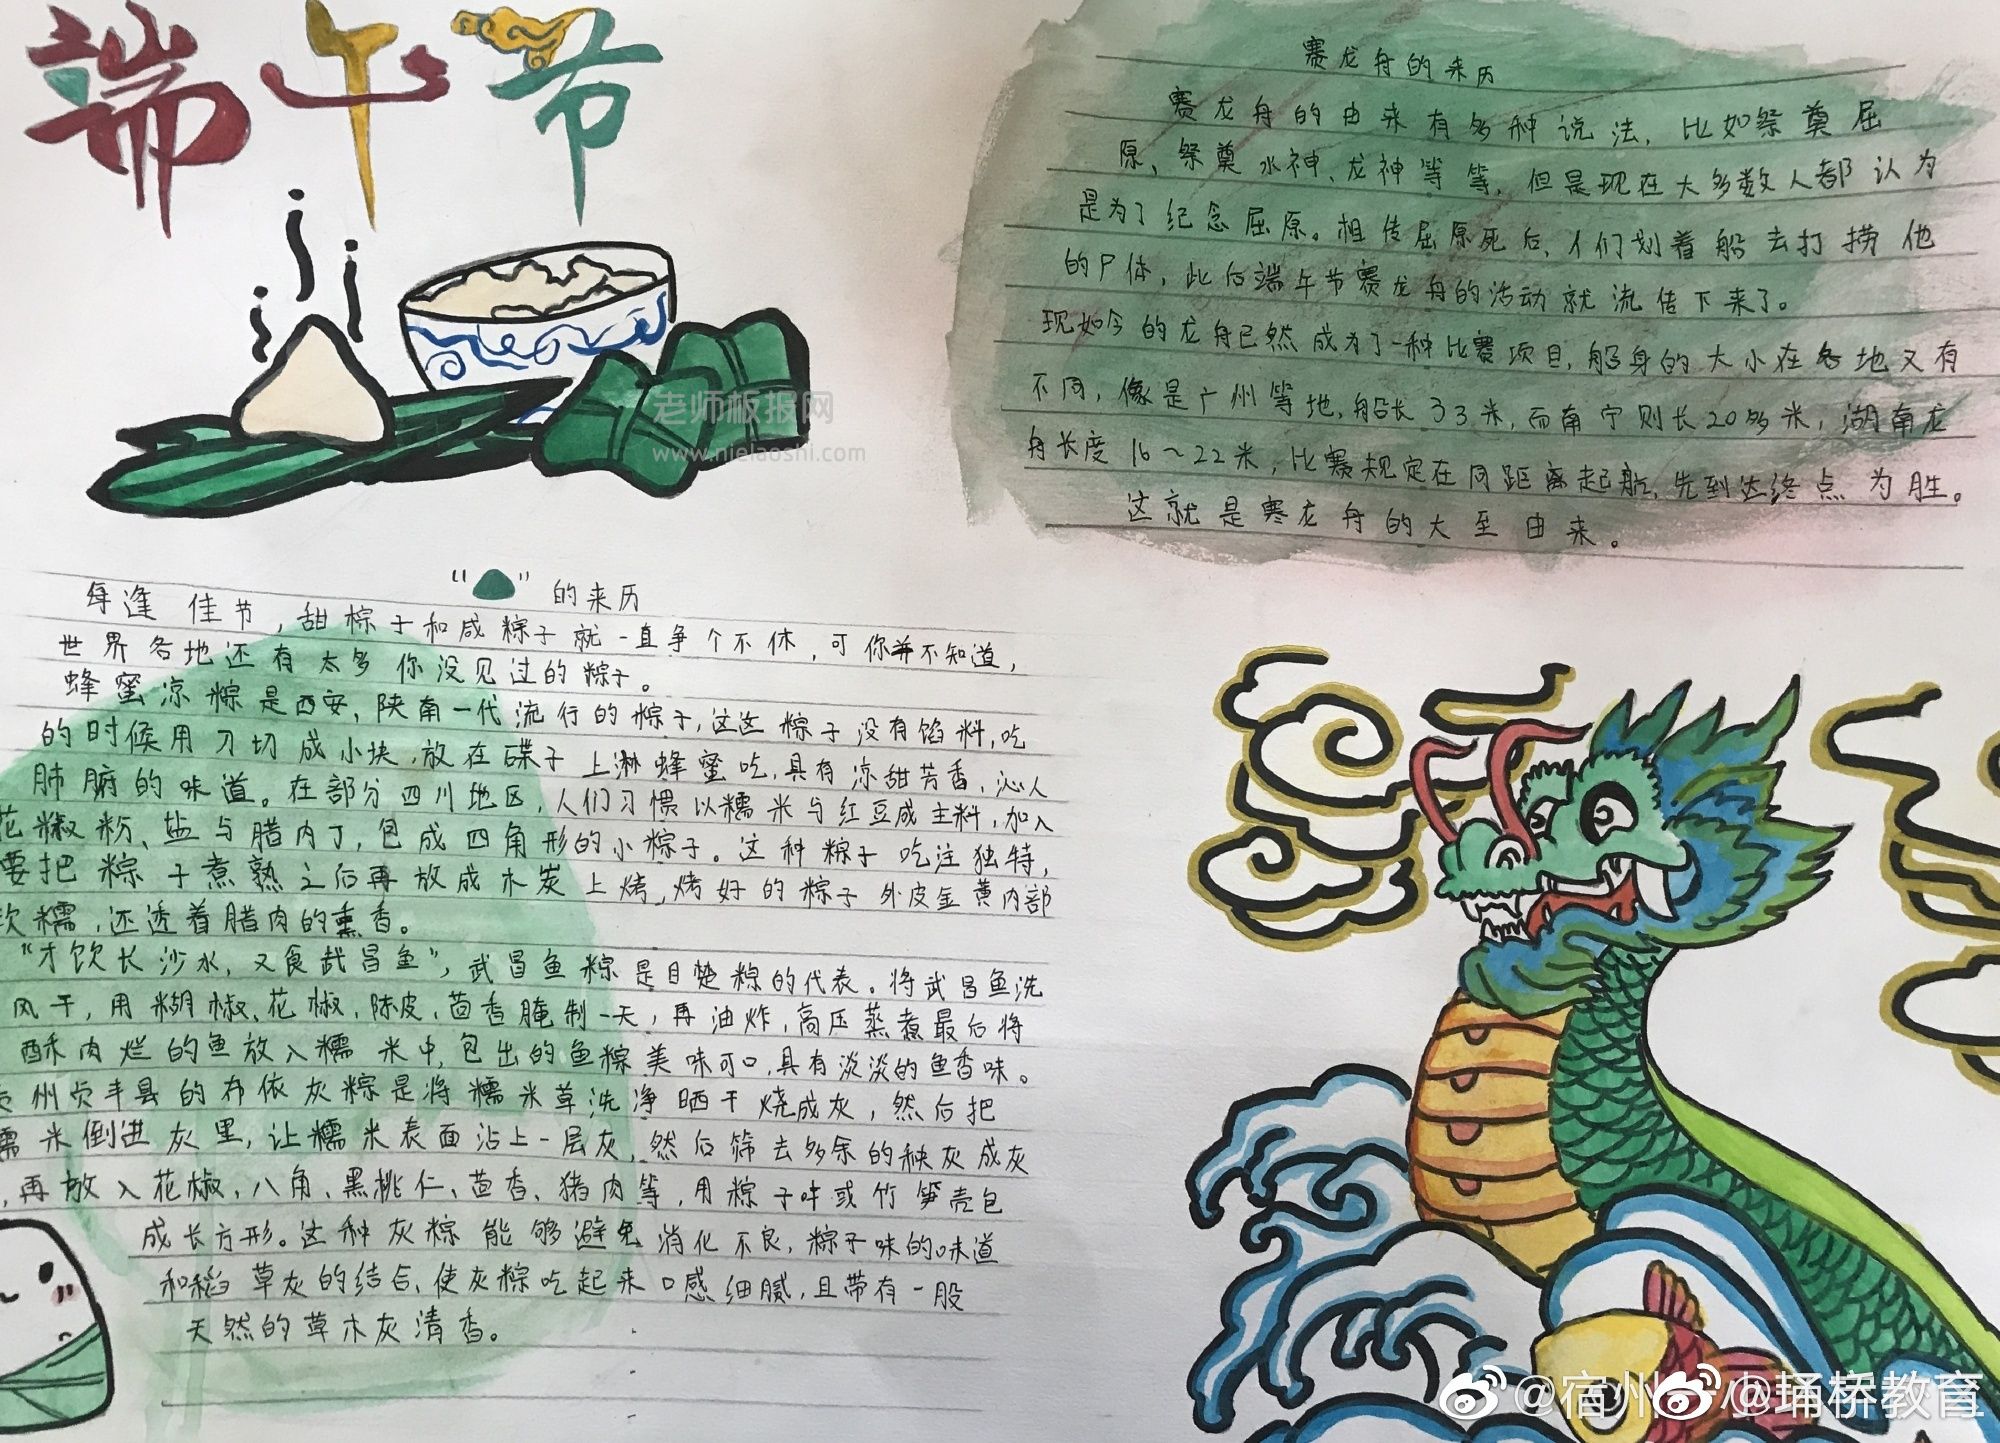 端午节
赛龙舟的来历
赛龙舟的由来有多种说法,比如祭奠屈
原、祭奠水神、龙神等等,但是现在大多数人都认为
是为了纪念屈原。相传屈原死后,人们划着船去打捞他
的尸体,此后端午节赛龙舟的活动就流传下来了。
现如今的龙舟已然成为了一种比赛项目,船身的大小在各地又有
不同,像是广州等地,船长33米,而南宁则长20多米,湖南龙
舟长度16~22米,比赛规定在同距离起航,先到达终点为胜。
这就是赛龙舟的大至由来。
老师板报网
www.nielaoshi.com
“ ”的来历
每逢佳节,甜棕子和咸粽子就一直争个不休,可你并不知道,
世界各地还有太多你没见过的粽子。
蜂蜜凉粽是西安,陕南一代流行的粽子,这这粽子没有馅料,吃
的时候用刀切成小块,放在碟子上淋蜂蜜吃,具有凉甜芳香,沁人
肺腑的味道。在部分四川地区,人们习惯以糯米与红豆成主料,加入
花椒粉、盐与腊内丁,包成四角形的小粽子。这种粽子吃注独特,
要把粽子煮熟之后再放成木炭上烤,烤好的粽子外皮金黄内部
软糯,还透着腊肉的熏香。
“才饮长沙水,又食武昌鱼”,武昌鱼粽是目楚粽的代表。将武昌鱼洗
风干,用糊椒、花椒,陈皮,茴香腌制一天,再油炸,高压蒸煮最后将
酥肉烂的鱼放入糯米中,包出的鱼粽美味可口,具有淡淡的鱼香味。
州贞丰县的布依灰粽是将糯米草洗净晒干烧成灰,然后把
糯米倒进灰里,让糯米表面沾上一层灰,然后筛去多余的秧灰成灰
,再放入花椒、八角、黑桃仁、茴香、猪肉等,用粽子叶或竹笋壳包
成长方形。这种灰粽能够避免消化不良,粽子味的味道
和稻草灰的结合、使灰粽吃起来口感细腻,且带有一股
天然的草木灰清香。
@宿州
@埇桥教育